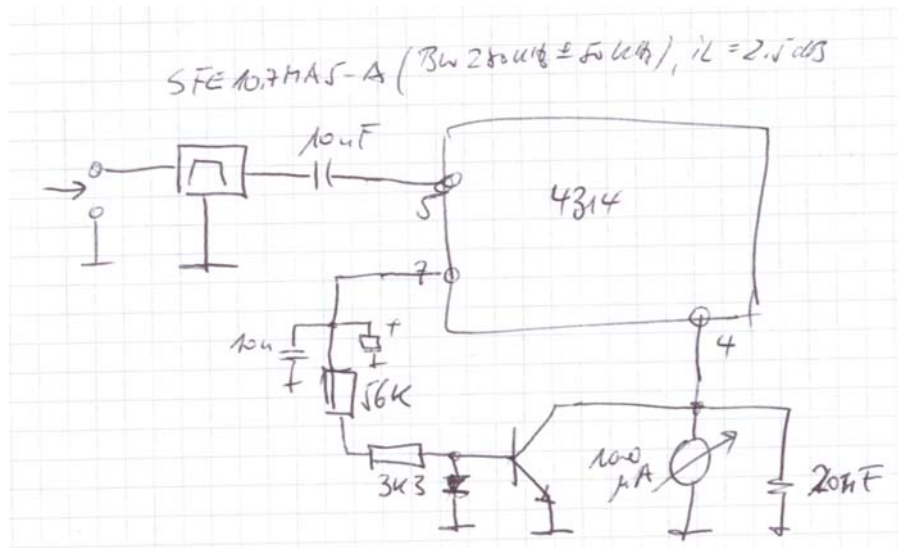 SFE 10.7MA5-A (BW 280kHz ± 50kHz), iL = 2.5dB
10nF
5
4314
7
+
10n
4
56K
3K3
100
µA
20nF